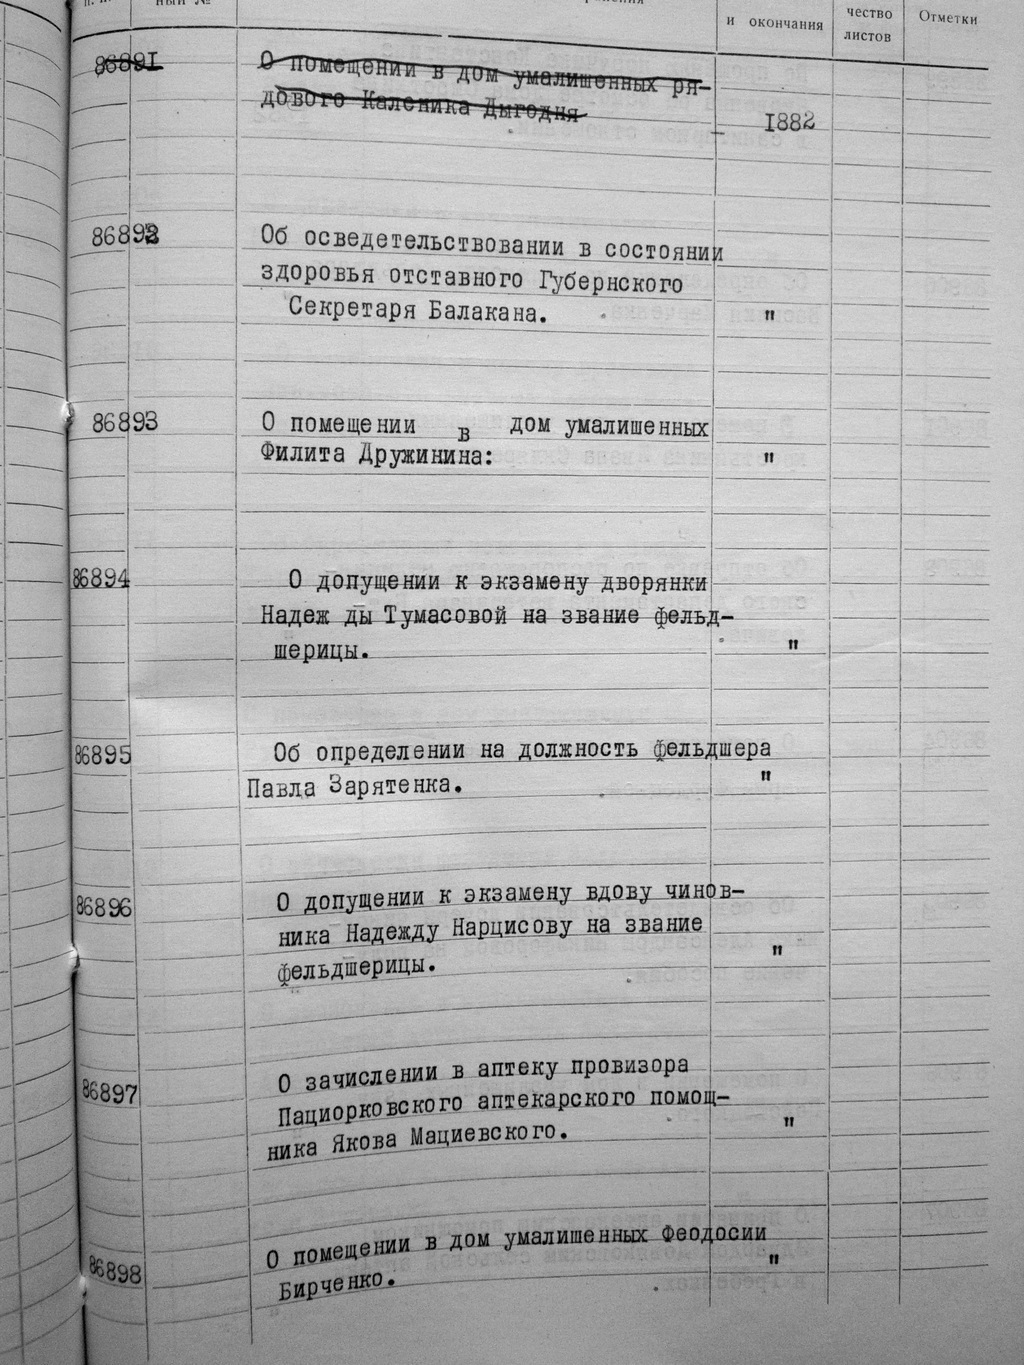 и окончания
чество
листов
Отметки
86891 О помещении в дом умалишенных ря-
дового Каленика Дыгодня
1882
86892 Об осведетельствовании в состоянии
здоровья отставного Губернского
Секретаря Балакана. "
86893 О помещении в дом умалишенных
Филита Дружинина: "
86894 О допущении к экзамену дворянки
Надеж ды Тумасовой на звание фельд-
шерицы. "
86895 Об определении на должность фельдшера
Павла Зарятенка. "
86896 О допущении к экзамену вдову чинов-
ника Надежду Нарцисову на звание
фельдшерицы. "
86897 О зачислении в аптеку провизора
Пациорковского аптекарского помощ-
ника Якова Мациевского. "
86898 О помещении в дом умалишенных Феодосии
Бирченко. "